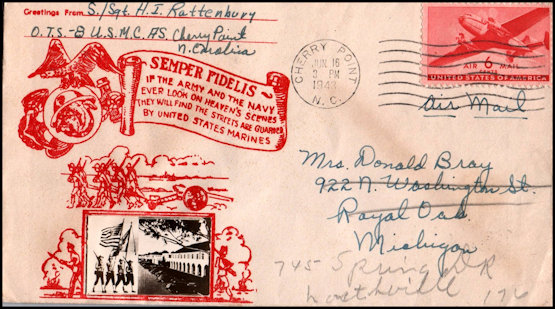 Greetings From S/Sgt. H. I. Rattenbury
O.T.S-8 U.S.M.C.A.S. Cherry Point
N. Carolina
SEMPER FIDELIS
IF THE ARMY AND THE NAVY
EVER LOOK ON HEAVEN'S SCENES
THEY WILL FIND THE STREETS ARE GUARDED
BY UNITED STATES MARINES
CHERRY POINT
JUN 16
3 PM
1943
N. C.
AIR 6¢ MAIL
UNITED STATES OF AMERICA
Air Mail
Mrs. Donald Bray
922 N. Washington St.
Royal Oak,
Michigan
745 Spring
Northville